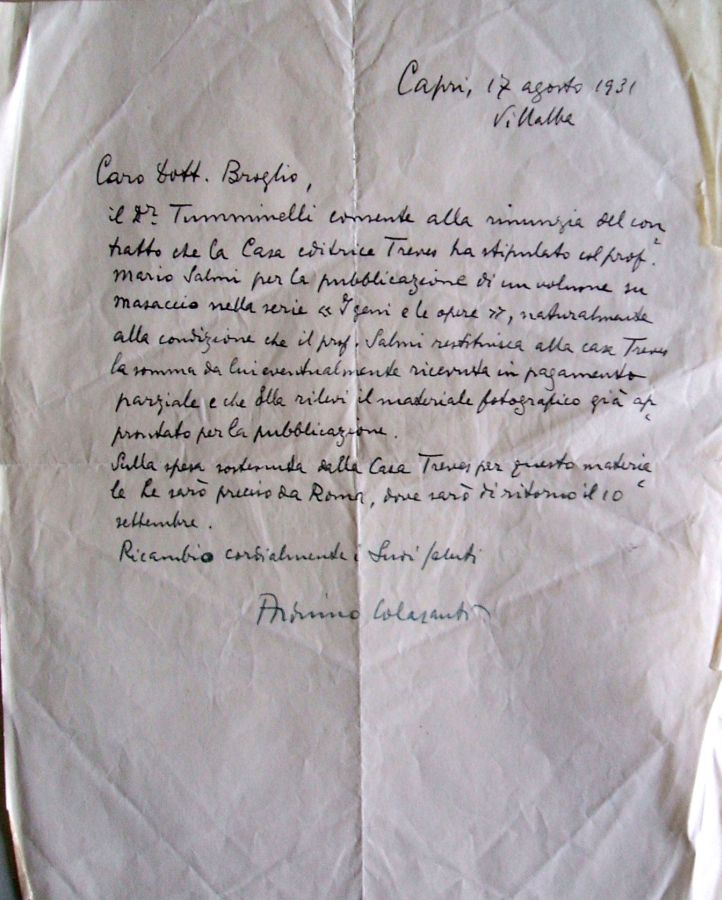 Capri, 17 agosto 1931
Villalba
Caro Dott. Broglio,
il Dr. Tumminelli consente alla rinunzia del con
tratto che la Casa editrice Treves ha stipulato col prof.
Mario Salmi per la pubblicazione di un volume su
Masaccio nella serie « I geni e le opere », naturalmente
alla condizione che il prof. Salmi restituisca alla casa Treves
la somma da lui eventualmente ricevuta in pagamento
parziale e che Ella rilevi il materiale fotografico già ap"
prontato per la pubblicazione.
Sulla spesa sostenuta dalla Casa Treves per questo materia"
le Le sarò preciso da Roma, dove sarò di ritorno il 10
settembre.
Ricambio cordialmente i Suoi saluti
Arduino Colasanti